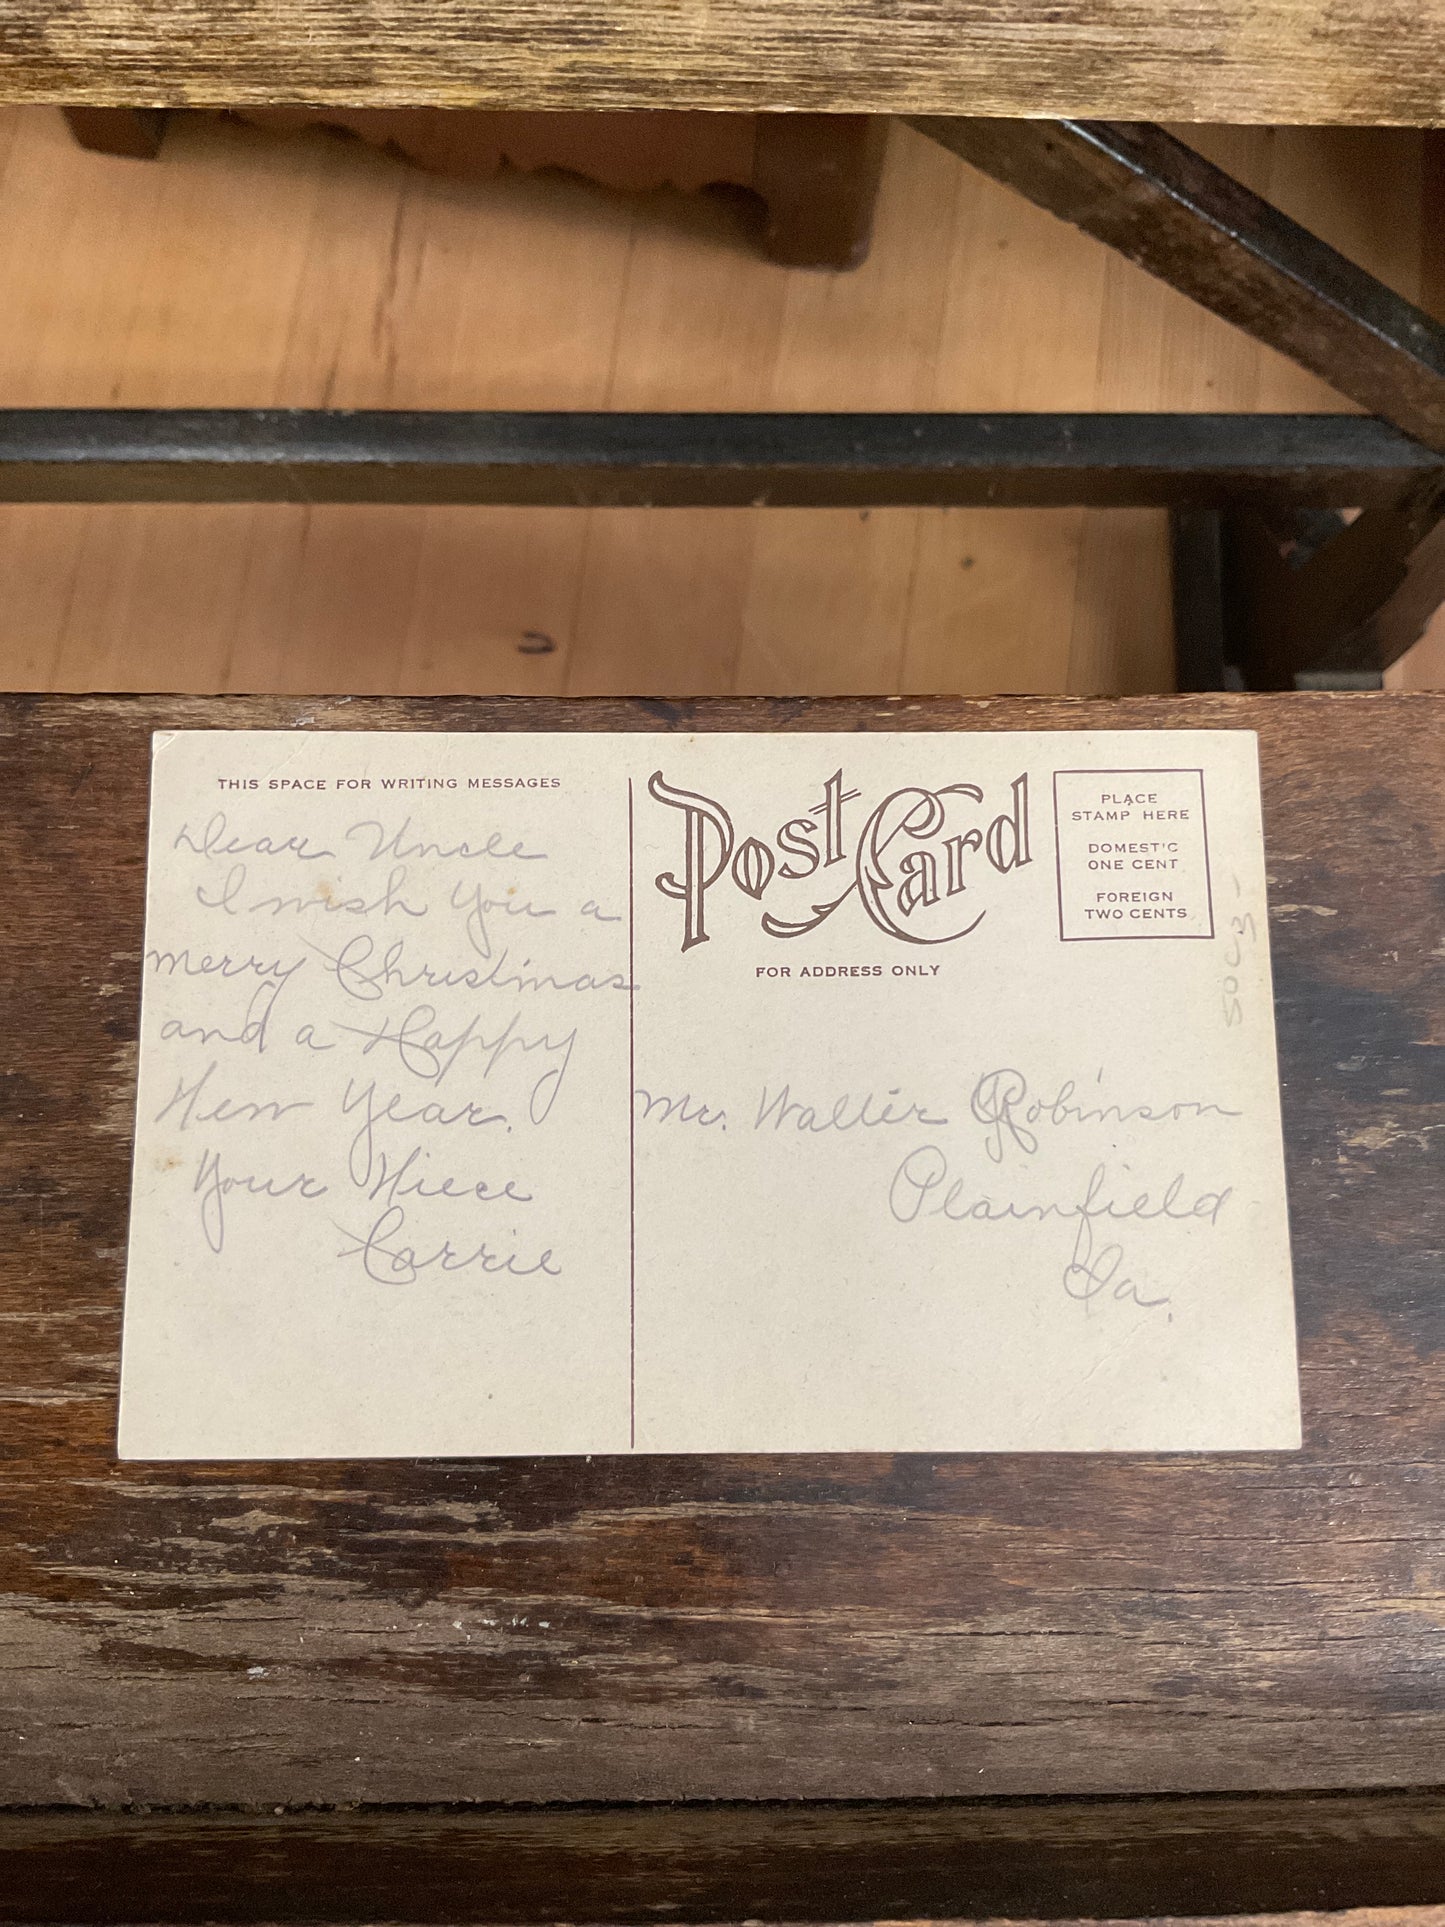 THIS SPACE FOR WRITING MESSAGES
Dear Uncle
I wish you a
merry Christmas
and a Happy
New Year.
Your Niece
Carrie
Post Card
FOR ADDRESS ONLY
PLACE
STAMP HERE
DOMESTIC
ONE CENT
FOREIGN
TWO CENTS
Mr. Walter Robinson
Plainfield
Ia.